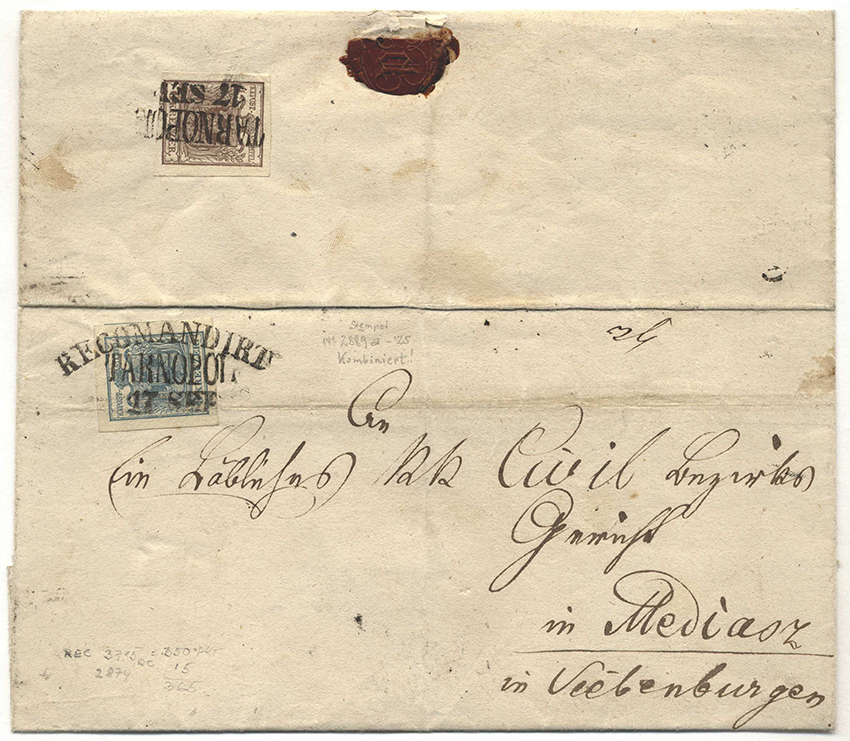 17 SEP
TARNOPOL
RECOMANDIRT
TARNOPOL
17 SEP
Stempel
2889 d - 25
Kombiniert!
An
Ein Löbliches KK Civil Bezirks
Gericht
in Mediasz
in Siebenburgen
REC 3715 = 350
2874 15
365